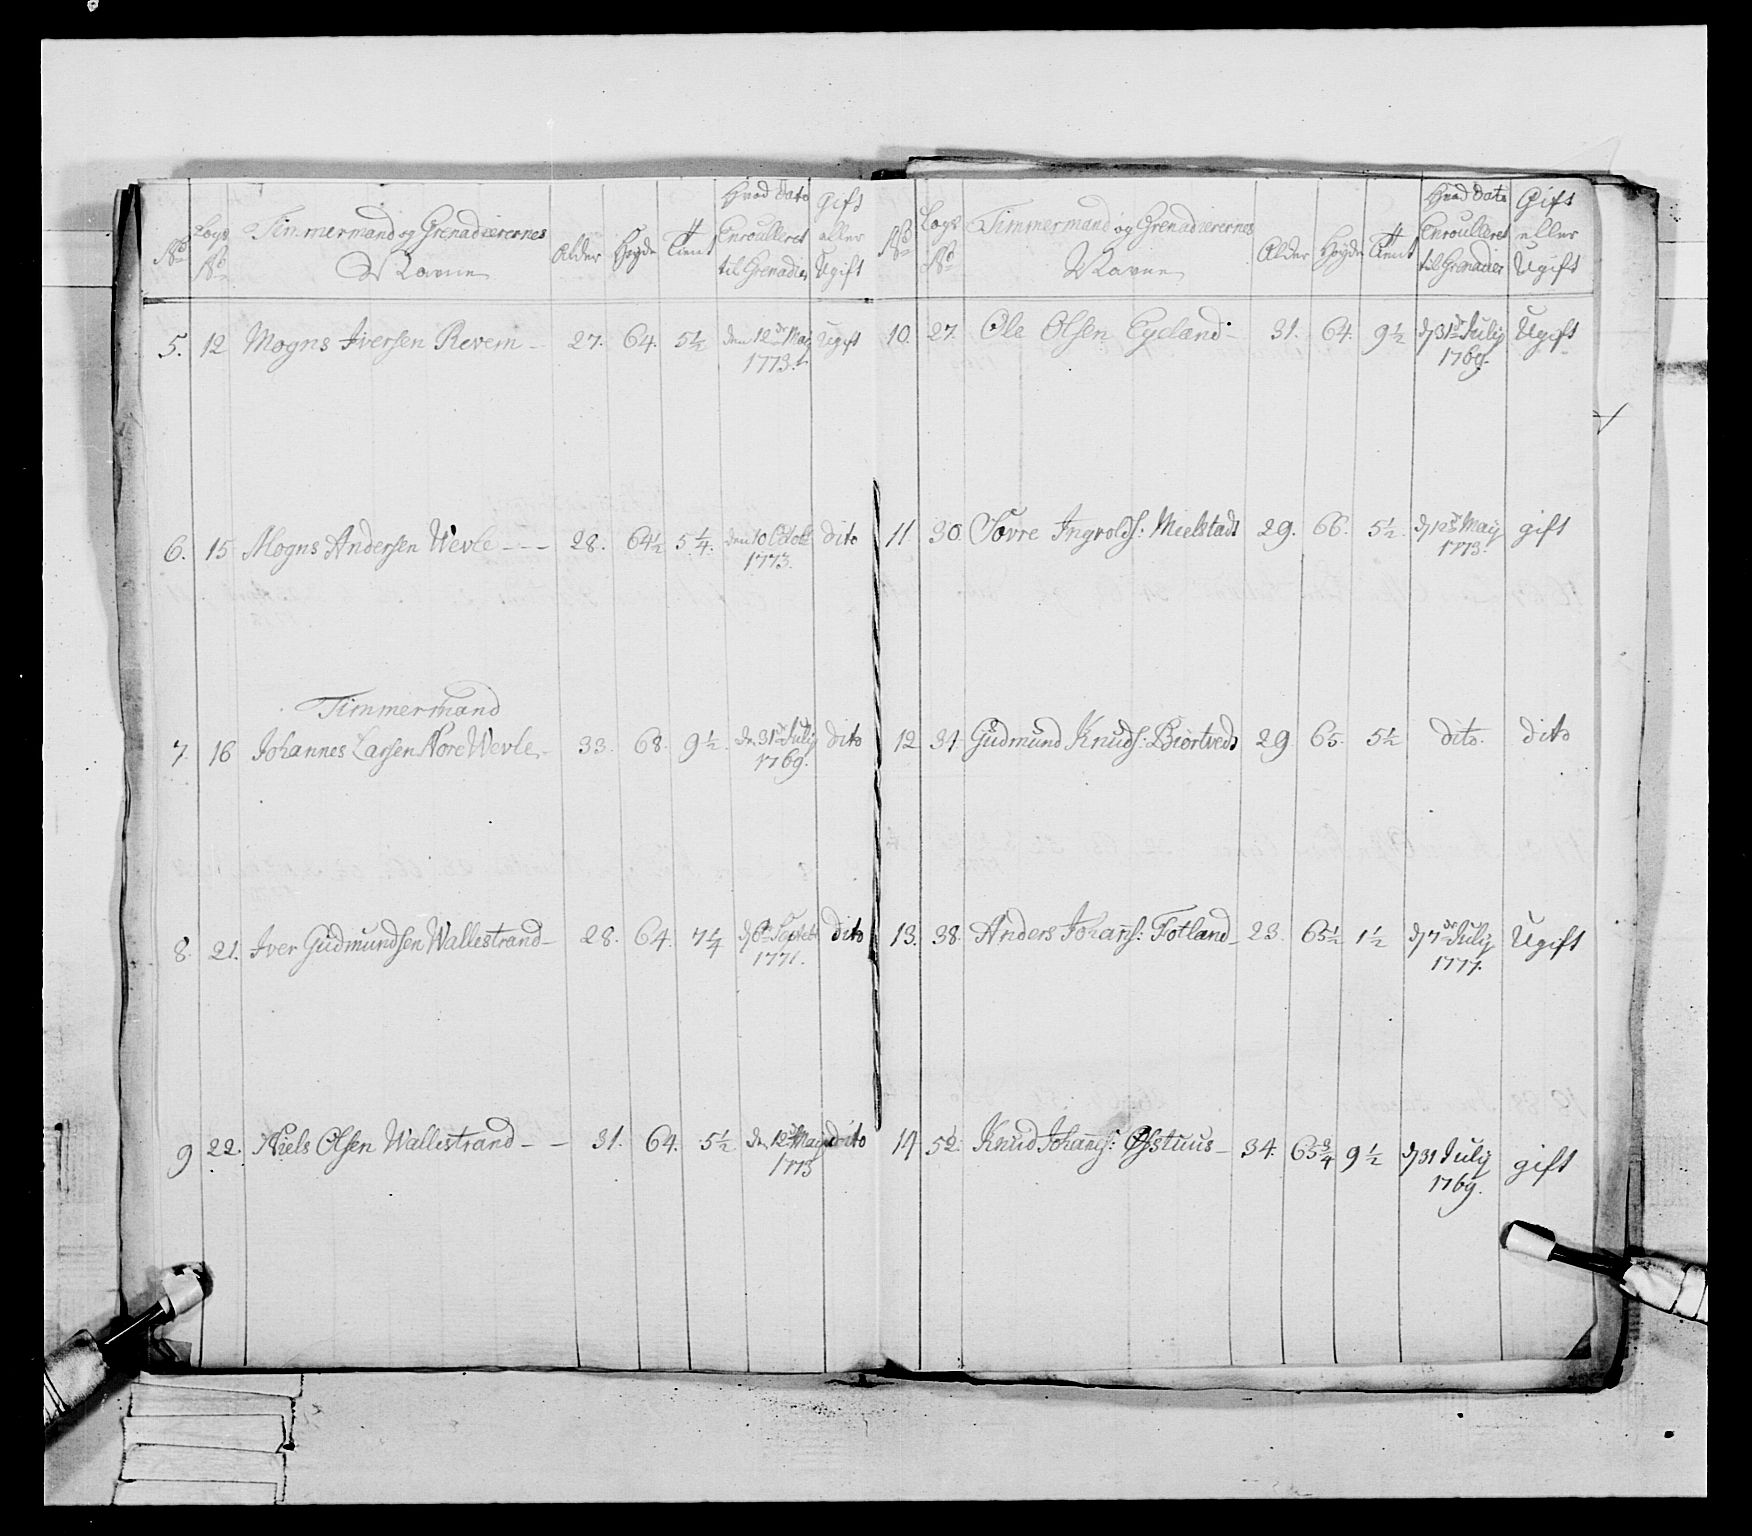 No
Lægs No
Timmermand og Grenaderernes Navne
Alder
Høyde
Tient
Hvad Dato Enroulleret til Grenadier
Gift eller Ugift
5. 12 Mogns Iversen Revem - 27. 64. 5½ den 12te Maij 1773. Ugift
6. 15 Mogns Andersen Wevle - - - 28. 64½ 5¼. den 10 Octob 1773. dito
Timmermand
7. 16 Johannes Larsen Nore Wevle - 33. 68. 9½. dn 31te Julij 1769. dito
8. 21. Iver Gudmundsen Wallestrand - 28. 64. 7¼ d 6te Septebr 1771. dito
9 22. Niels Olsen Wallestrand - - 31. 64. 5½ dn 12te Maij 1773 dito
No
Lægs No
Timmermand og Grenaderernes Navne
Alder
Høyde
Tient
Hvad Dato Enroulleret til Grenadier
Gift eller Ugift
10. 27. Ole Olsen Egeland - 31. 64. 9½ d 31te Julij 1769. Ugift
11. 30. Tovre Ingvolds: Mielstads 29. 66. 5½. d 12te Maij 1773. gift
12 31. Gudmund Knuds: Biortveds 29. 65. 5½ dito. dito
13. 38. Anders Johans: Totland - 23. 65½ 1½ d 7de Julij 1777. Ugift
14 52. Knud Johans: Østuus - 34. 65¾ 9½ d 31 Julij 1769. gift